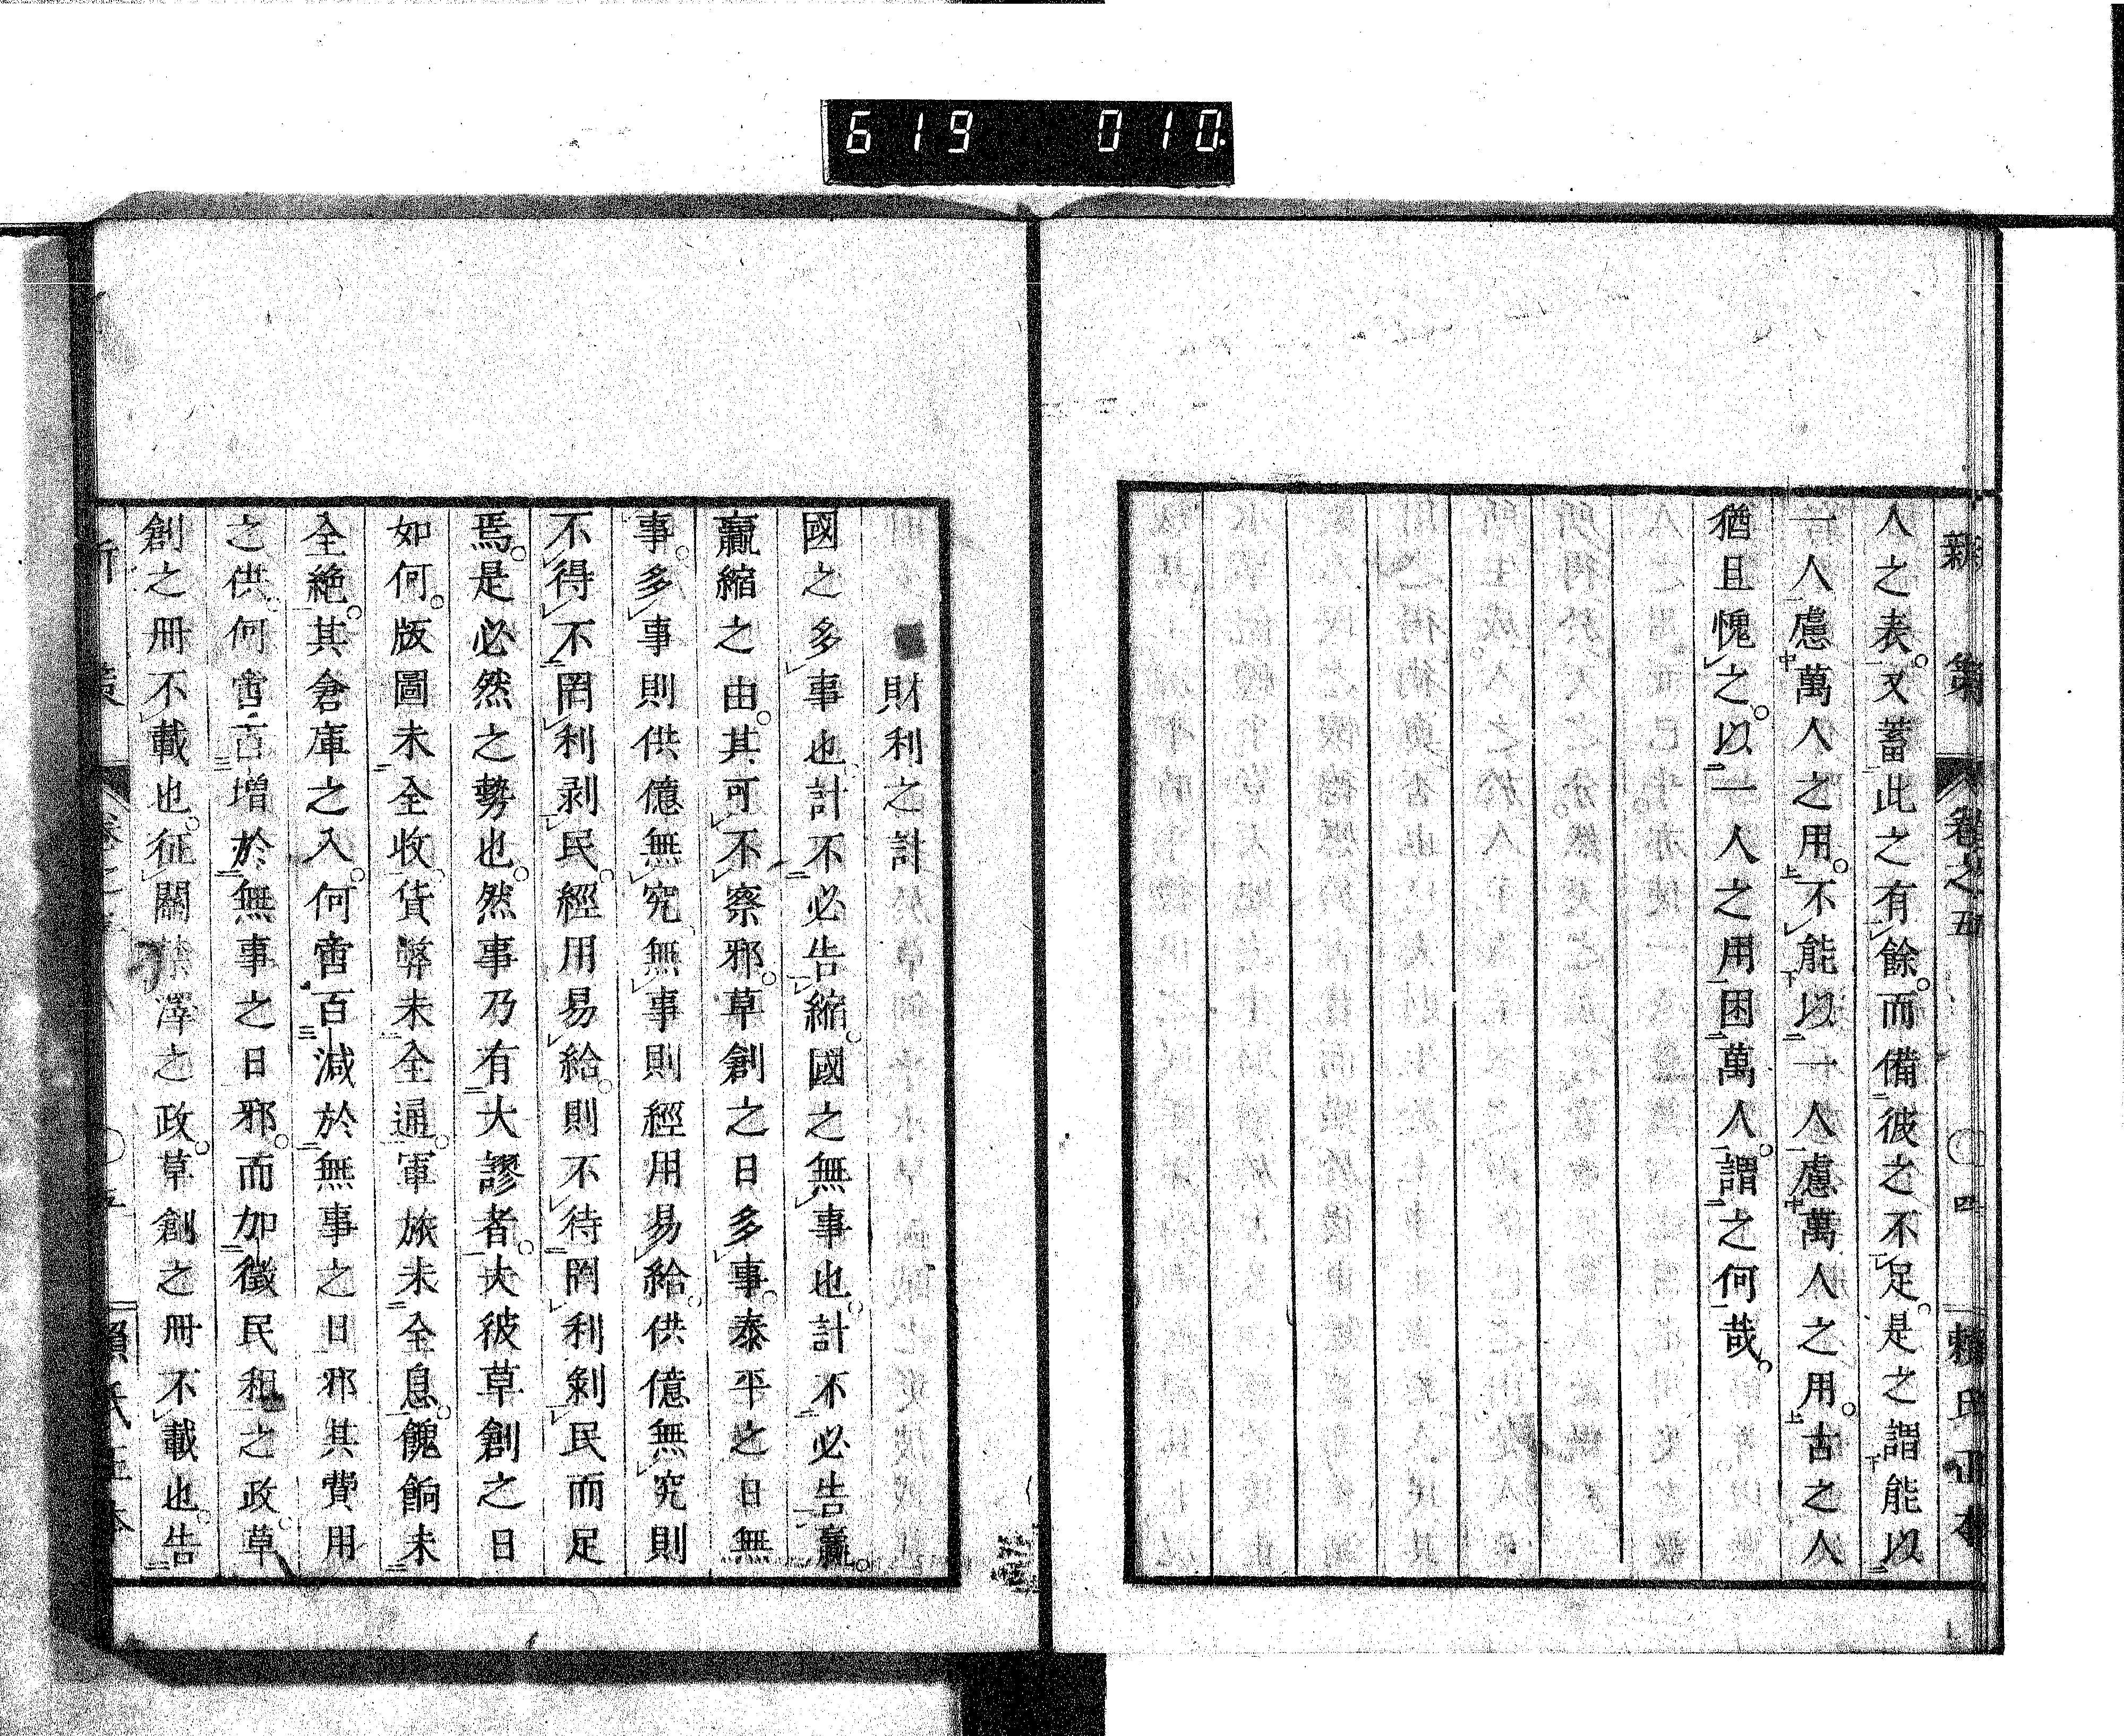 619 010
新策 卷之五 ○四 賴氏正本
人之表。又蓄此之有餘。而備彼之不足。是之謂能以
一人慮萬人之用。不能以一人慮萬人之用。古之人
猶且愧之。以一人之用困萬人。謂之何哉。
財利之計
國之多事也計不必告縮。國之無事也。計不必告贏。
贏縮之由。其可不察邪。草創之日多事。泰平之日無
事。多事則供億無究。無事則經用易給。供億無究則
不得不罔利剥民。經用易給。則不待罔利剝民而足
焉。是必然之勢也。然事乃有大謬者。夫彼草創之日
如何。版圖未全收。貨幣未全通。軍旅未全息。餽餉未
全絶。其倉庫之入。何啻百減於無事之日邪其費用
之供。何啻百增於無事之日邪。而加徵民租之政。草
創之冊不載也。征關藮澤之政。草創之冊不載也。告